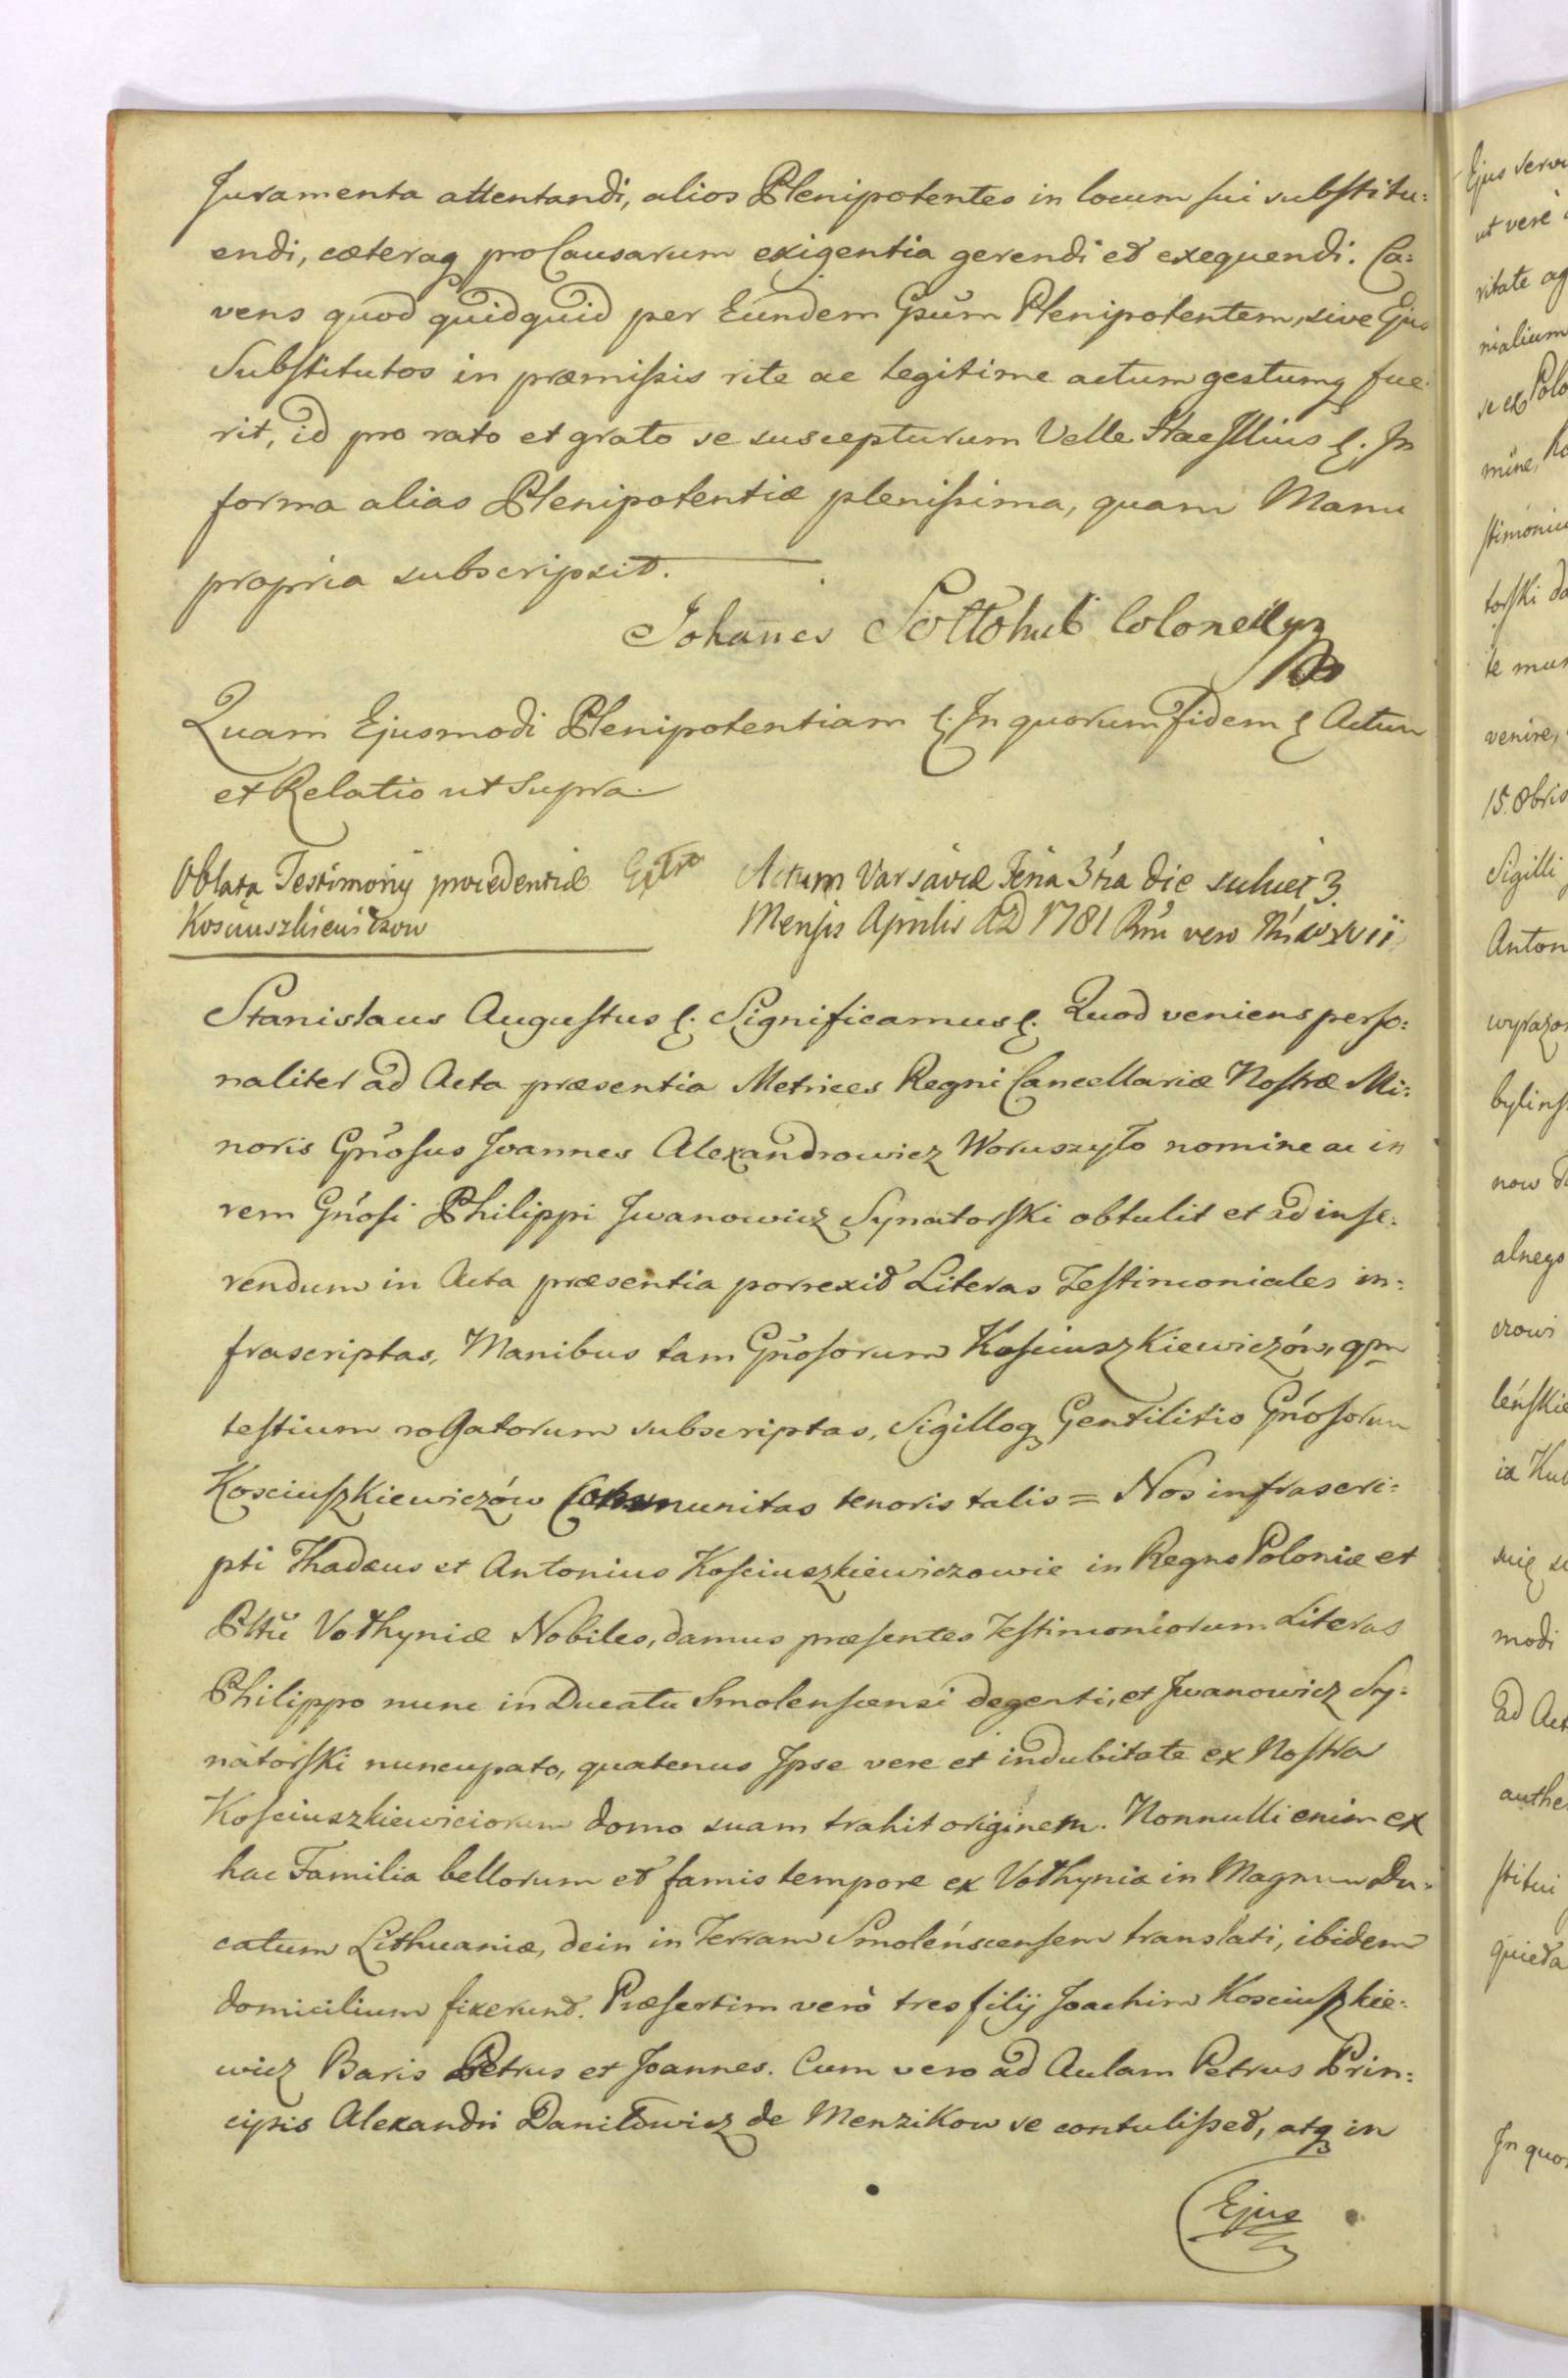 Juramenta attentandi, alios Plenipotentes in locum sui substitu:
endi, cæteraq pro Causarum exigentia gerendi et exequendi. Ca:
vens quod quidquid per Eundem Gsũm Plenipotentem, sive Ejus
Substitutos in præmissis rite ac legitime actum gestumq fue:
rit, id pro rato et grato se suscepturum Velle. In
forma alias Plenipotentiæ plenissima, quam Manu
propria subscripsit.
Johanes Sołłohub Colonellus
Quam Ejusmodi Plenipotentiam In quorum fidem Actum
et Relatio ut Supra.
Oblata Testimonÿ procedentiæ Extr
Kosciuszkiewiczow
Actum Varsaviæ Feria 3tia die scilicet 3
Mensis Aprilis AD 1781 Rñi vero Nri xvii
Stanislaus Augustus Significamus Quod veniens perso:
naliter ad Acta præsentia Metrices Regni Cancellariæ Nostræ Mi:
noris Gñosus Joannes Alexandrowicz Woruszyło nomine ac in
rem Gñosi Philippi Jwanowicz Synatorski obtulit et ad inse:
rendum in Acta præsentia porrexit Literas Testimoniales in:
frascriptas, Manibus tam Gñosorum Kosciuszkiewiczów, qm
testium rogatorum subscriptas, Sigilloq Gentilitio Gñosorum
Kosciuszkiewiczów Communitas tenoris talis = Nos infrascri:
pti Thadæus et Antonius Kosciuszkiewiczowie in Regno Poloniæ et
Pttũ Vołhyniæ Nobiles, damus præsentes Testimoniorum Literas
Philippo nunc in Ducatu Smolenscensi degenti, et Jwanowicz Sy:
natorski nuncupato, quatenus Jpse vere et indubitate ex Nostra
Kosciuszkiewiciorum domo suam trahit originem. Nonnulli enim ex
hac Familia bellorum et famis tempore ex Vołhynia in Magnum Du:
catum Lithuaniæ, dein in Terram Smoleńscensem translati, ibidem
domicilium fixerunt. Præsertim verò tres filÿ Joachim Kosciuszkie:
wicz Baris Petrus et Joannes. Cum vero ad Aulam Petrus Prin:
cipis Alexandri Daniłowicz de Menzikow se contulisset, atq in
Ejus
Ejus
ut vere
ritate
nialium
se ex
mine,
stimoniu
torski
te
venire,
15 8bris
Sigilli
Anton
wyrazo
bylins
now
alnego
czowi
leńskie
ia
się
modi
ad Act
authe
stitui
quieta
Jn quor